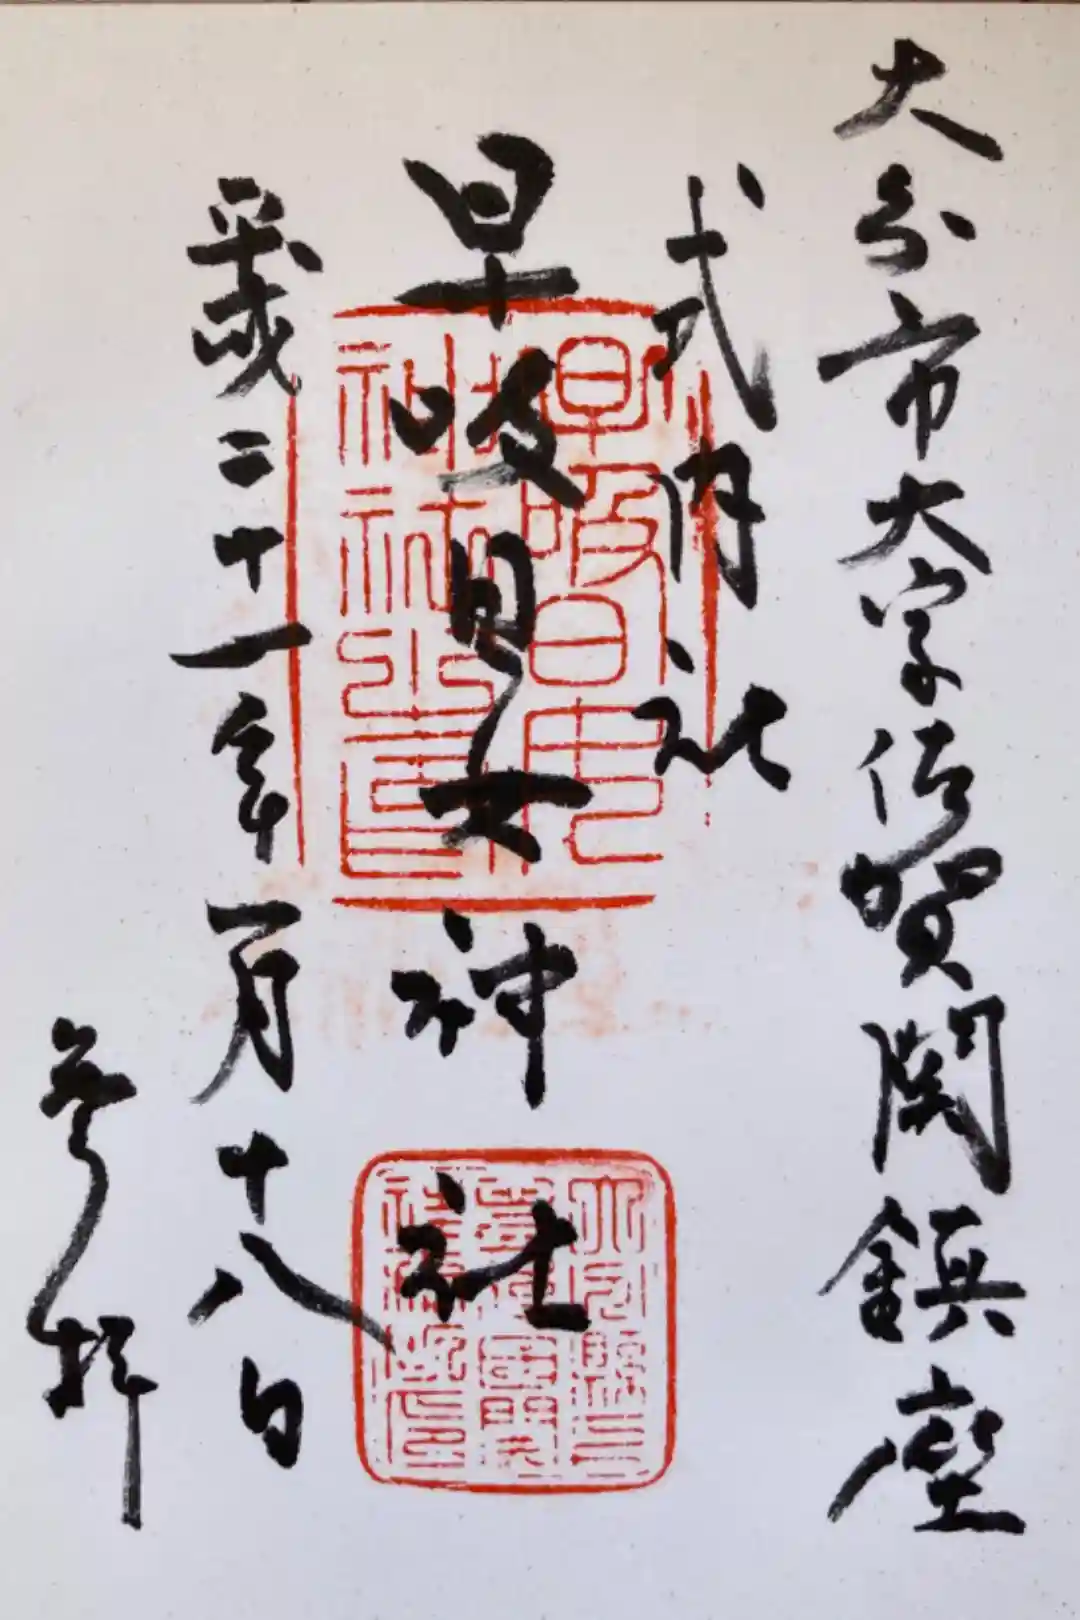 大分市大字佐賀関鎮座
式内社
早吸日女神社
平成二十一年一月十八日
参拝
早吸日女
神社之印